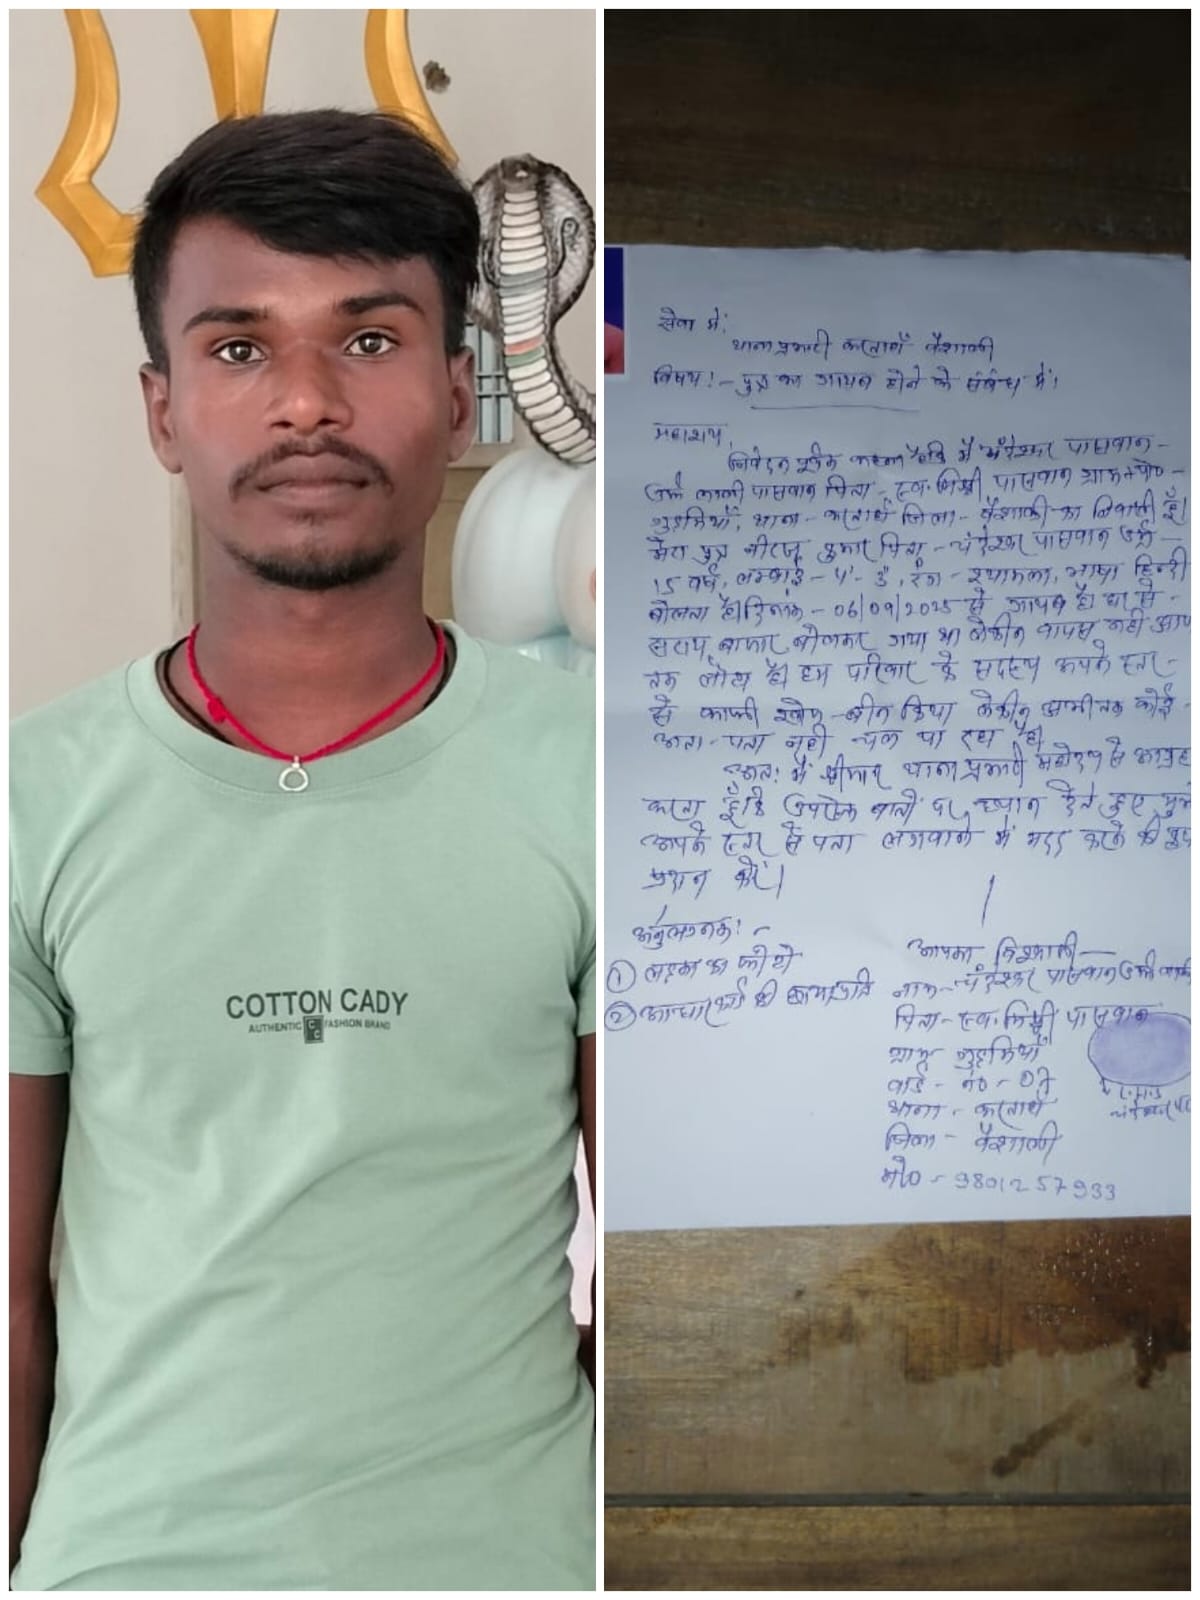 COTTON CADY
AUTHENTIC CC FASHION BRAND
सेवा में,
थाना प्रभारी
वैशाली
विषय:- पुत्र का गायब होने के संबंध में।
महाशय,
निवेदन पूर्वक कहना है कि मैं चंदेश्वर पासवान
उर्फ पासवान पिता - स्व. पासवान ग्राम + पो० -
थाना - जिला - वैशाली का निवासी हूँ।
मेरा पुत्र नीरज कुमार पिता - चंदेश्वर पासवान उम्र -
15 वर्ष, लम्बाई - रंग - श्यामला, भाषा हिन्दी
बोलता है। दिनांक - 06/09/2025 से गायब है। घर से -
सराय बाजार बोलकर गया था लेकीन वापस नहीं आज
तक लौटा है। हम परिवार के सदस्य अपने स्तर -
से काफी खोज - बीन किया लेकीन अभी तक कोई -
अता - पता नहीं चल पा रहा है।
अतः मैं श्रीमान थाना प्रभारी महोदय से आग्रह
करता हूँ कि उपरोक्त बातों पर ध्यान देते हुए मुझे
अपने स्तर से पता लगवाने में मदद करने की
प्रदान करें।
अनुलग्नक: -
① लड़का का फोटो
② आधार कार्ड की छायाप्रति
आपका विश्वासी
नाम - चंदेश्वर पासवान उर्फ
पिता - स्व. पासवान
ग्राम
वार्ड - नं० - 07
थाना -
जिला - वैशाली
मो० - 9801257933